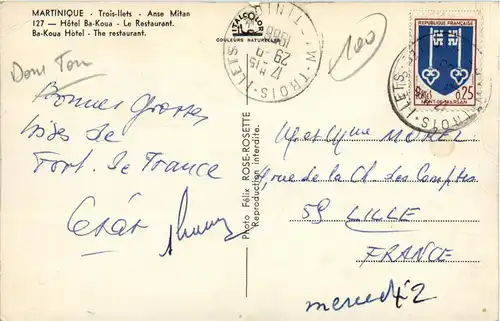 MARTINIQUE - Trois-Ilets - Anse Mitan
127 — Hôtel Ba-Koua - Le Restaurant.
Ba-Koua Hôtel - The restaurant.
ITALCOLOR
COULEURS NATURELLES
TROIS-ILETS
17 H 15
29-9
100
REPUBLIQUE FRANÇAISE
0,25
POSTES
MONT-DE-MARSAN
TROIS-ILETS
Dom Tom
Bonnes Grosses
bises de
Fort. de France
César
Photo Félix ROSE-ROSETTE
Reproduction interdite.
rue de la Ch. des Comptes
59 LILLE
FRANCE